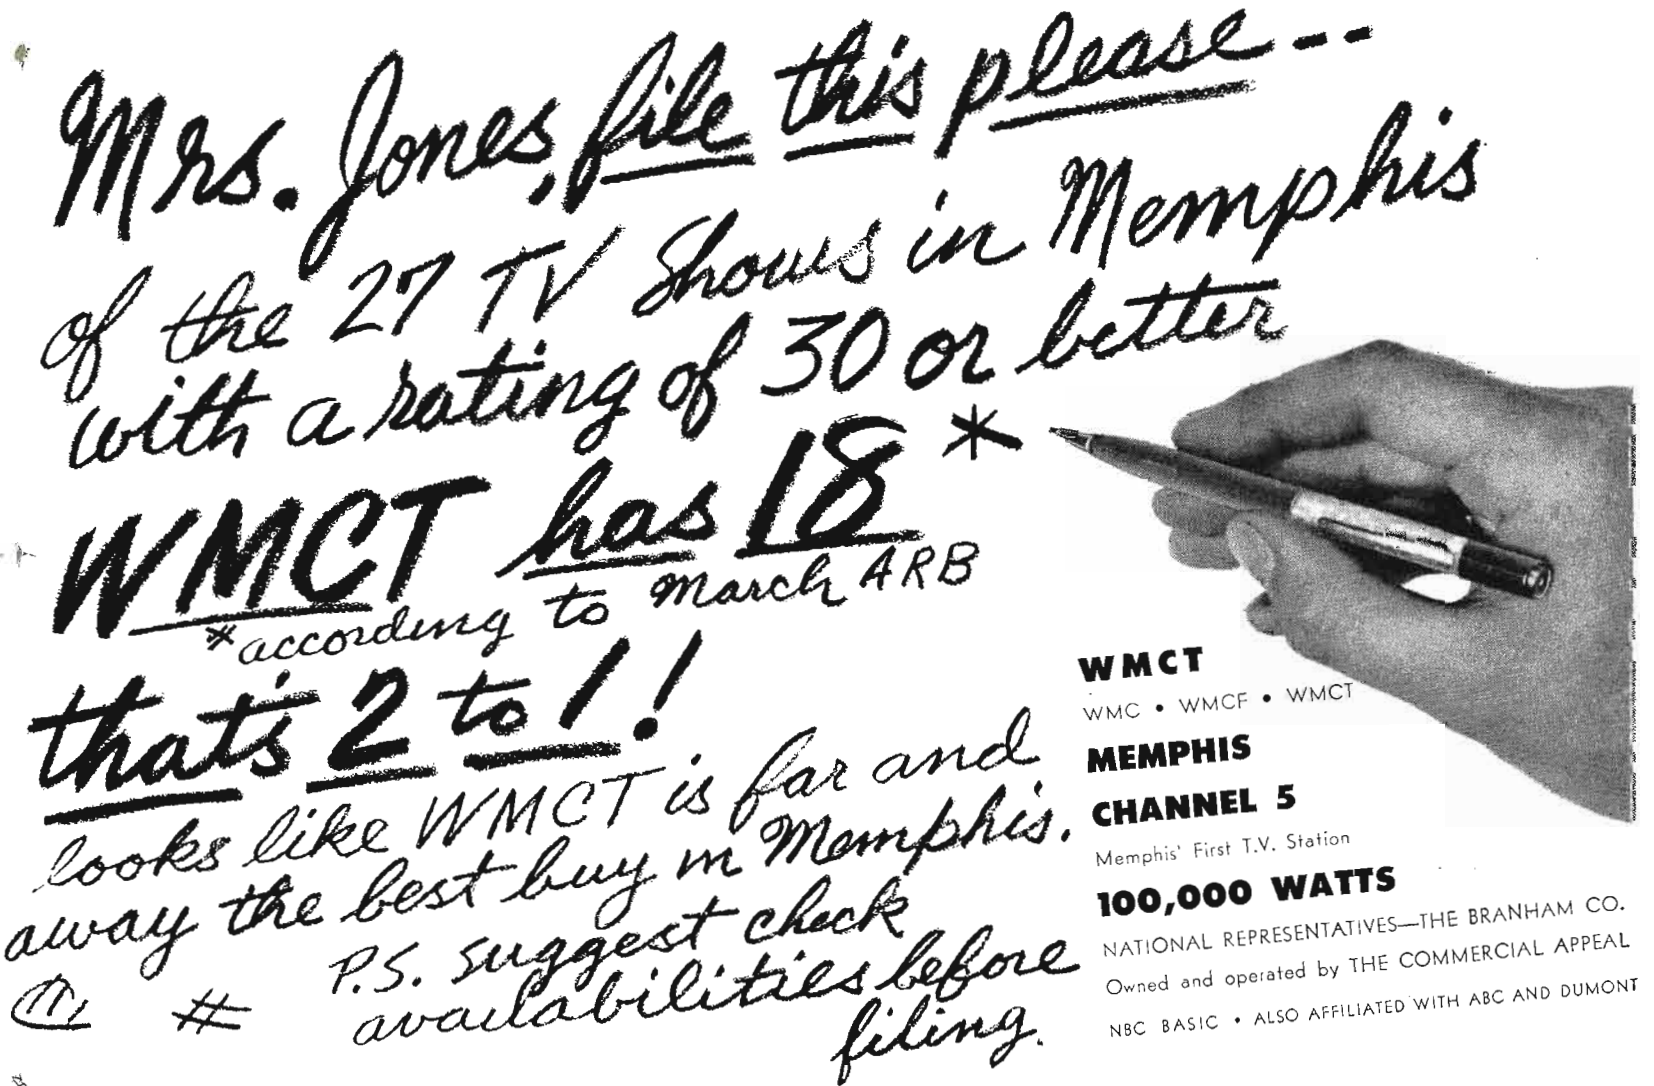 Mrs. Jones, file this please--
of the 27 TV Shows in Memphis
with a rating of 30 or better
WMCT has 18*
*according to March ARB
that's 2 to 1!
looks like WMCT is far and
away the best buy in Memphis.
P.S. suggest check
availabilities before
filing.
#
WMCT
WMC • WMCF • WMCT
MEMPHIS
CHANNEL 5
Memphis' First T.V. Station
100,000 WATTS
NATIONAL REPRESENTATIVES—THE BRANHAM CO.
Owned and operated by THE COMMERCIAL APPEAL
NBC BASIC • ALSO AFFILIATED WITH ABC AND DUMONT